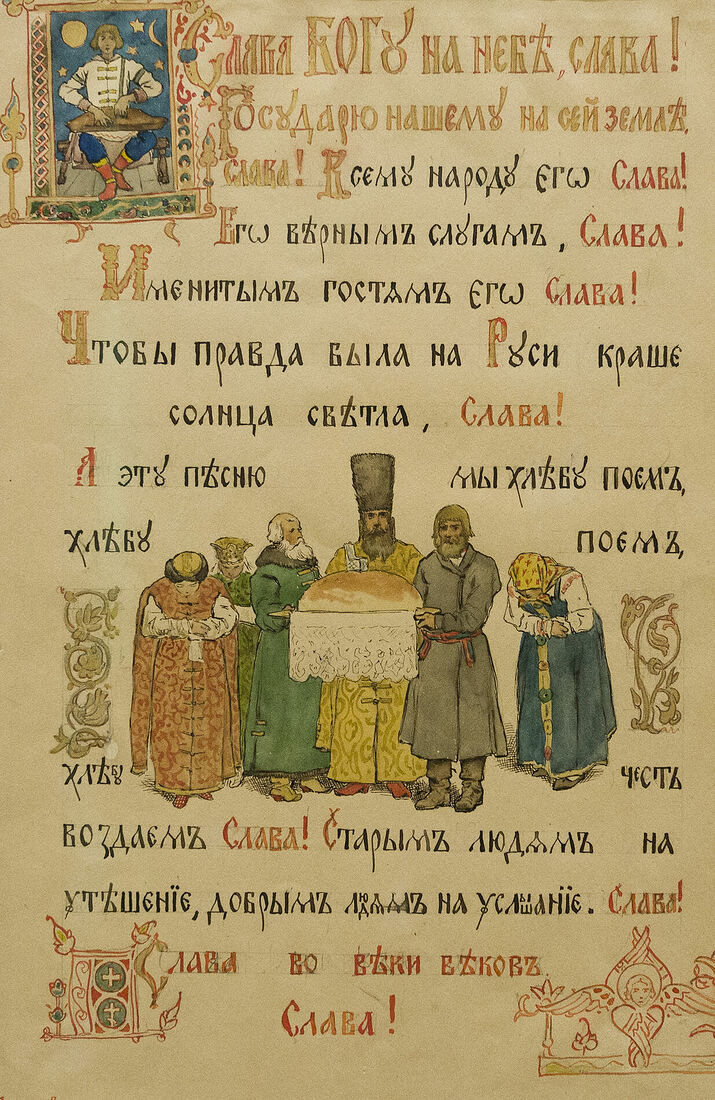 Слава Богу на небѣ, слава!
Государю нашему на сей землѣ,
слава! Всему народу егѡ Слава!
Егѡ вѣрнымъ слугамъ, Слава!
Именитымъ гостямъ егѡ Слава!
Чтобы правда была на Руси краше
солнца свѣтла, Слава!
А эту пѣсню мы хлѣбу поемъ,
хлѣбу поемъ,
хлѣбу честь
воздаемъ Слава! Старымъ людямъ на
утѣшенїе, добрымъ людямъ на услышанїе. Слава!
Слава во вѣки вѣковъ
Слава!